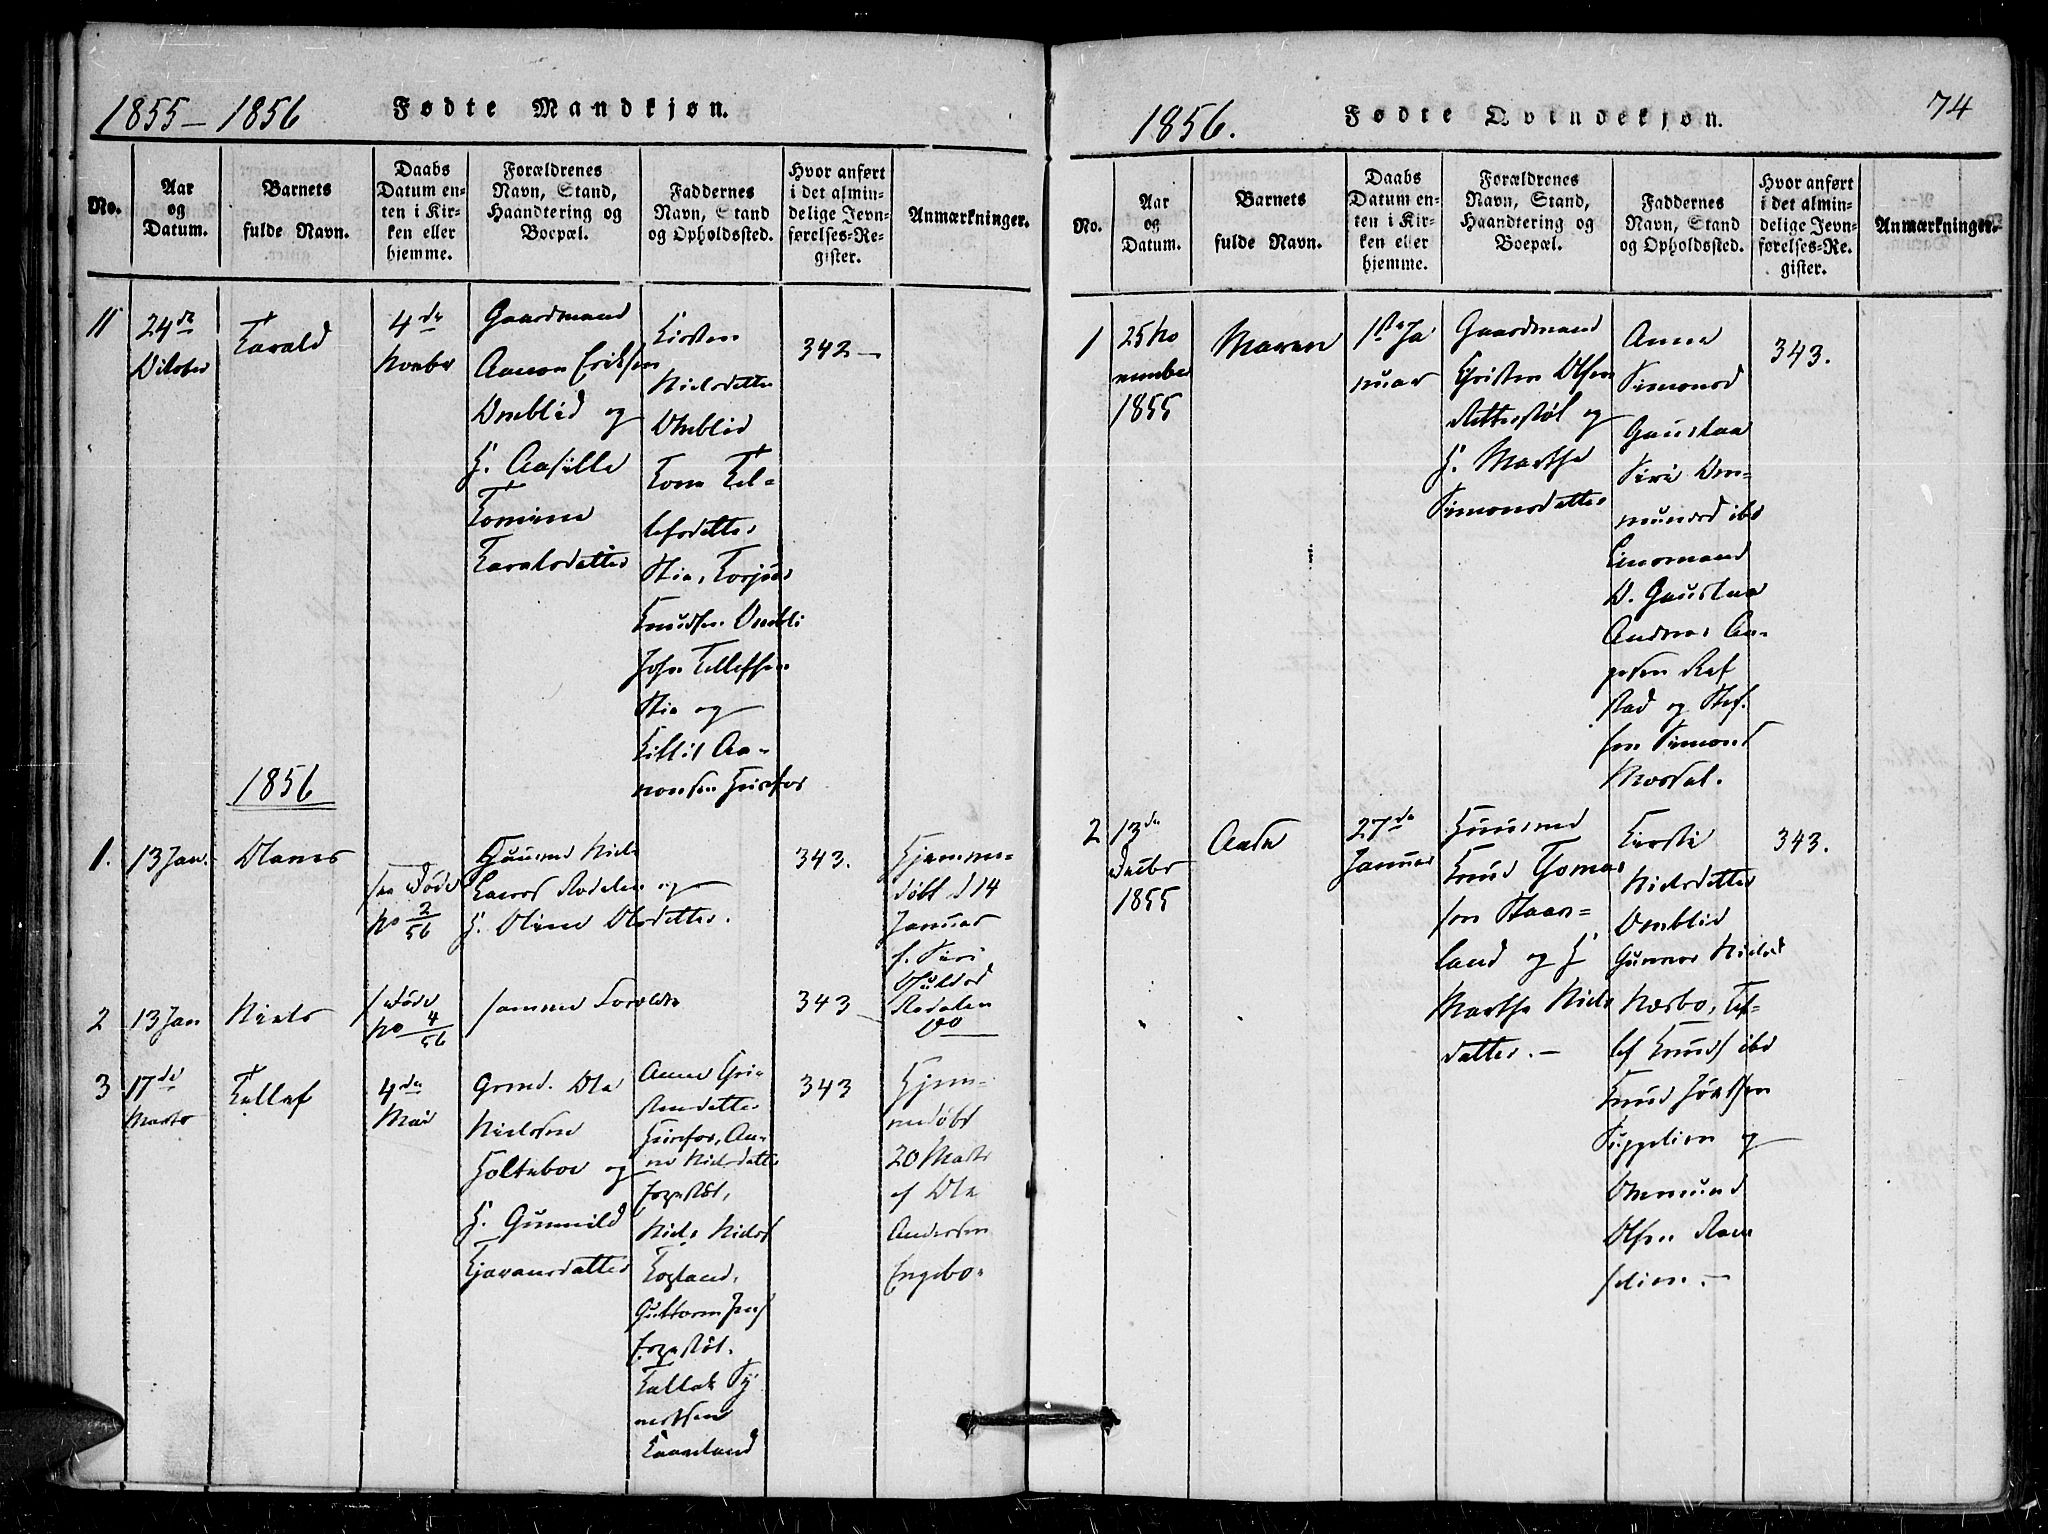 1855-1856 Fødte Mandkjøn.
No.
Aar
og
Datum.
Barnets
fulde Navn.
Daabs
Datum en-
ten i Kir-
ken eller
hjemme.
Forældrenes
Navn, Stand,
Haandtering og
Boepæl.
Faddernes
Navn, Stand
og Opholdssted.
Hvor anført
i det almin-
delige Jevn-
førelses-Re-
gister.
Anmærkninger.
11
24de
Octobr
Tarald
4de
Novbr
Gaardmand
Aanon Eriksen
Omblid og
H. Aasille
Tomine
Taralsdatter
Kirsten
Nielsdatter
Omblid
Tone Tel-
lefsdatter
Stie, Torjus
Knudsen Ombli
John Tellefsen
Stie og
Kittil Aa-
nonsen
342-
1856
1.
13 Jan.
Olaves
see Døde
No 2/56
Huusmd Niels
Rodalen og
H. Oline Olsdatter.
343.
Hjemme-
døbt d 14
Januar
f. Siri
Rodalen
2
13 Jan
Niels
s Døde
No 4/56
samme Forældre
343
do
3
17de
Marts
Tellef
4de
Mai
Grmd. Ole
Nielsen
Holteboe og
H. Gunnild
Kjøvansdatter
Anne Chri-
stensdatter
An-
ne Nielsdatter
Niels Niels
Togland,
Guttorm Jens
Tellef Sy
nertsen
343
Hjem-
medøbt
20 Marts
af Ole
Andersen
Engebo.
1856. Fødte Qvindekjøn. 74
No.
Aar
og
Datum.
Barnets
fulde Navn.
Daabs
Datum en-
ten i Kir-
ken eller
hjemme.
Forældrenes
Navn, Stand,
Haandtering og
Boepæl.
Faddernes
Navn, Stand
og Opholdssted.
Hvor anført
i det almin-
delige Jevn-
førelses-Re-
gister.
Anmærkninger.
1
25 No
vember
1855
Maren
1ste Ja
nuar
Gaardmand
Christen Olsen
Retterstøl og
H. Marthe
Simonsdatter
Anne
Simonsd
Gaustaa
Siri Om-
mundsd ibd
O. Gaustaa
Andreas Aa-
gesen Ref
stad og Stef-
fen Simons
Mosdal.
343.
2
13de
Decbr
1855
Aase
27de
Januar
Huusmd
Knud Thomas
sen Staas-
land og H
Marthe Niels
datter.-
Kirsti
Nielsdatter
Omblid
Gunnar Niels
Næsbo, Tel-
lef Knuds ibd
Knud
Tippelien og
Ommund
Olsen Ram
selien.-
343.